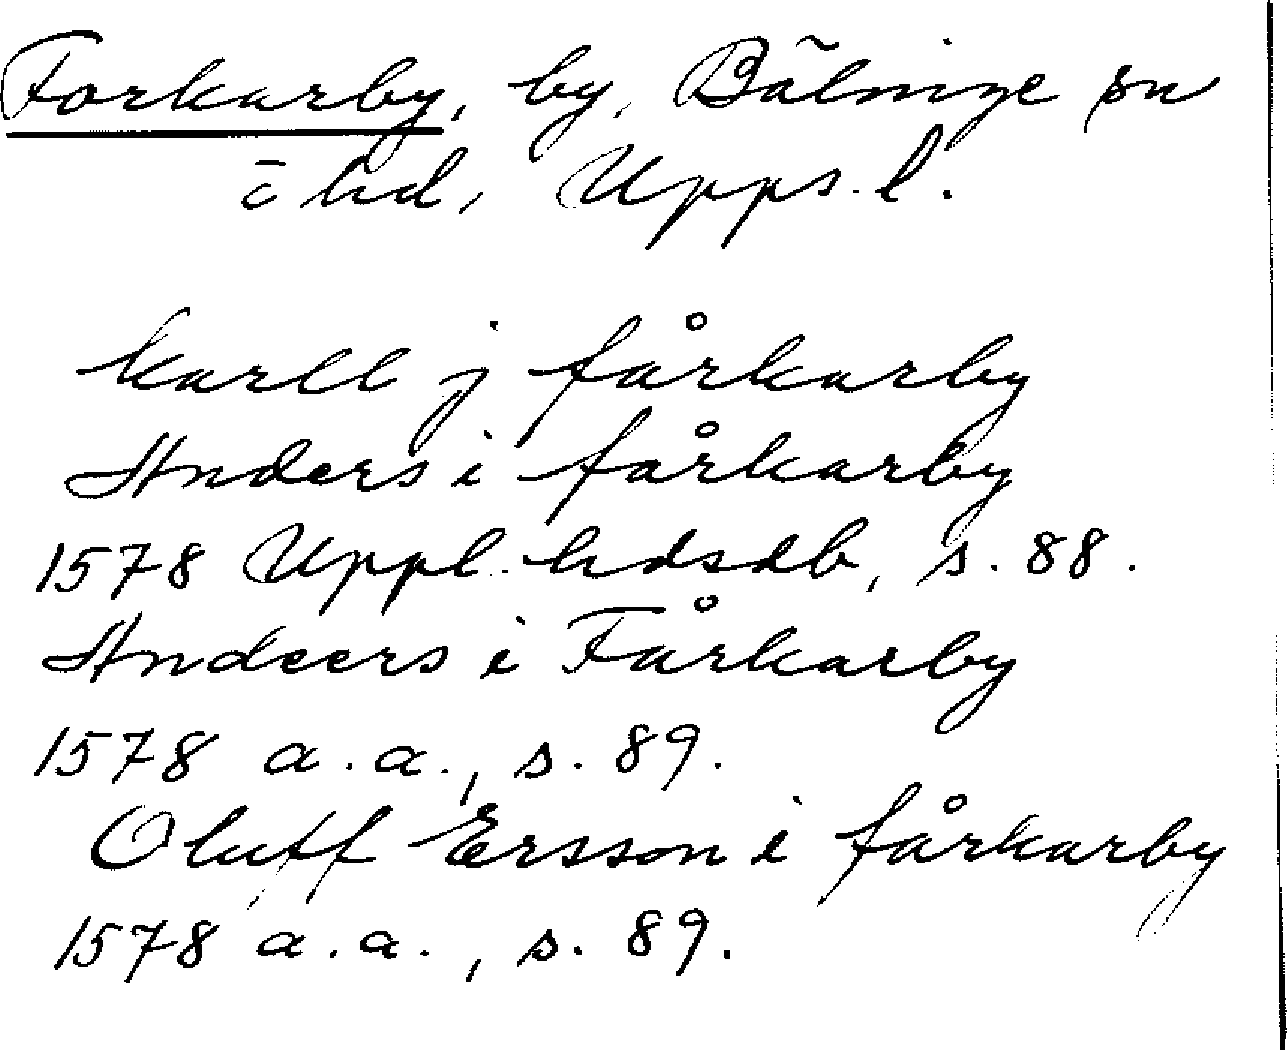 Forkarby, by, Bälinge sn
o hd, Upps. l.
karll j fårkarby
Anders i fårkarby
1578 Uppl. hdsdb, s. 88.
Andeers i Fårkarby
1578 a.a., s. 89.
Oluff Ersson i fårkarby
1578 a.a., s. 89.